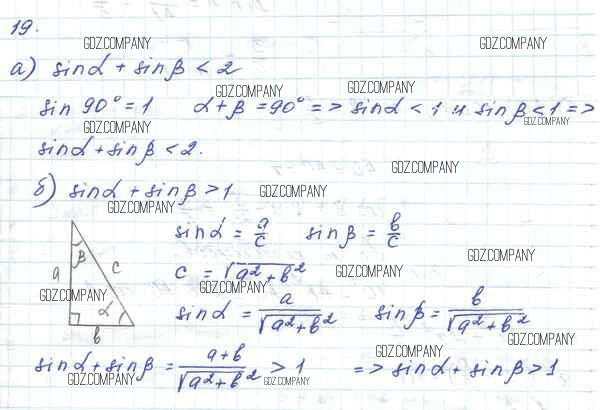 19.
GDZ.COMPANY GDZ.COMPANY
а) sinα + sinβ < 2
GDZ.COMPANY GDZ.COMPANY
sin 90° = 1 α + β = 90° => sinα < 1 и sinβ < 1 =>
GDZ.COMPANY GDZ.COMPANY
sinα + sinβ < 2.
GDZ.COMPANY
б) sinα + sinβ > 1 GDZ.COMPANY
GDZ.COMPANY
sinα = a/c sinβ = b/c
β
a c
GDZ.COMPANY
c = √(a² + b²) GDZ.COMPANY
GDZ.COMPANY GDZ.COMPANY
α
sinα = a/√(a² + b²) sinβ = b/√(a² + b²)
b
GDZ.COMPANY
GDZ.COMPANY
sinα + sinβ = (a + b)/√(a² + b²) > 1 => sinα + sinβ > 1
GDZ.COMPANY GDZ.COMPANY